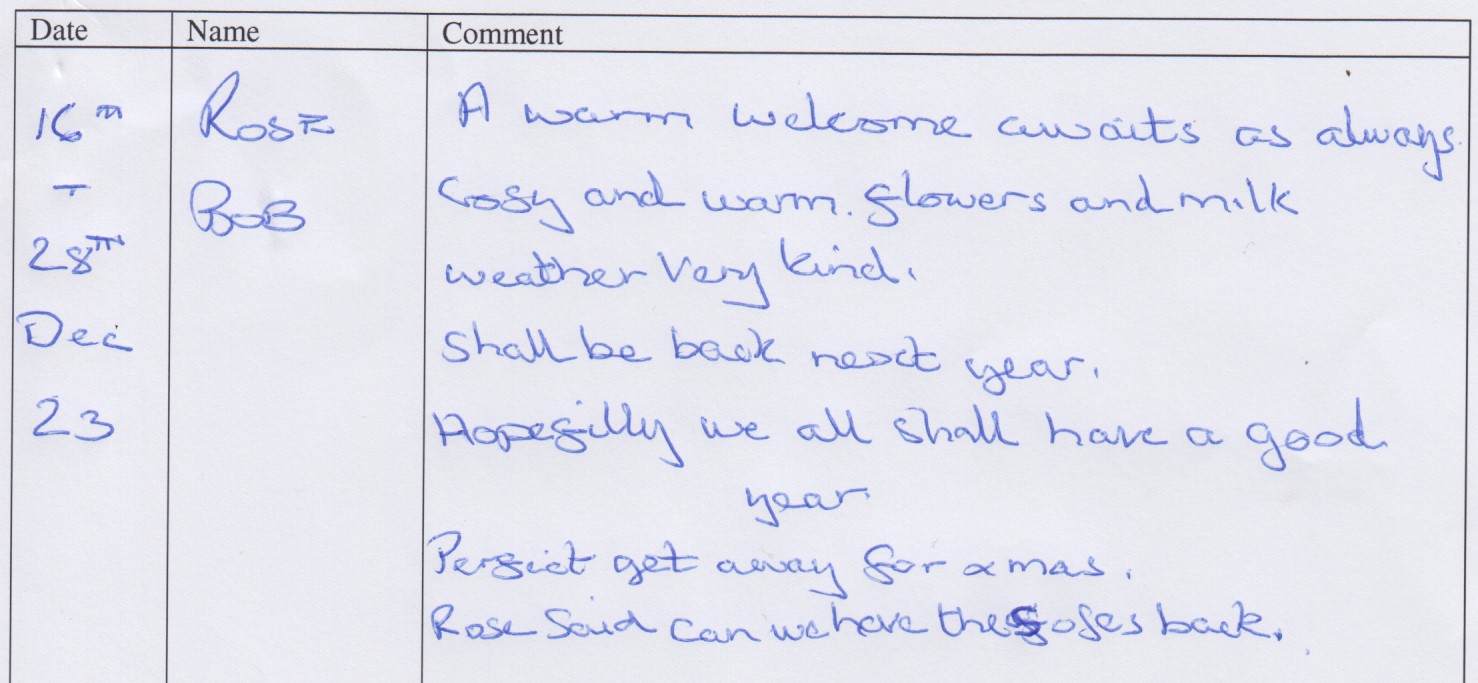 Date Name Comment
16TH Rose A warm welcome awaits as always.
- BoB Cosy and warm. flowers and milk
28TH weather Very kind.
Dec Shall be back next year.
23 Hopefilly we all shall have a good
year.
Perfict get away for xmas.
Rose Said can we have the back.